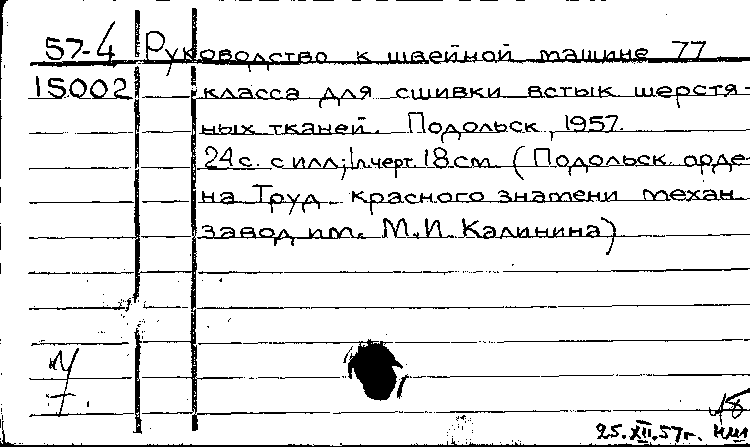 57-4 Руководство к швейной машине 77
15002 класса для сшивки встык шерстя-
ных тканей. Подольск, 1957.
24с. с илл; 1л.черт. 18см (Подольск. орде-
на Труд. красного знамени механ.
завод им. М.И. Калинина)
25.XII.57г.